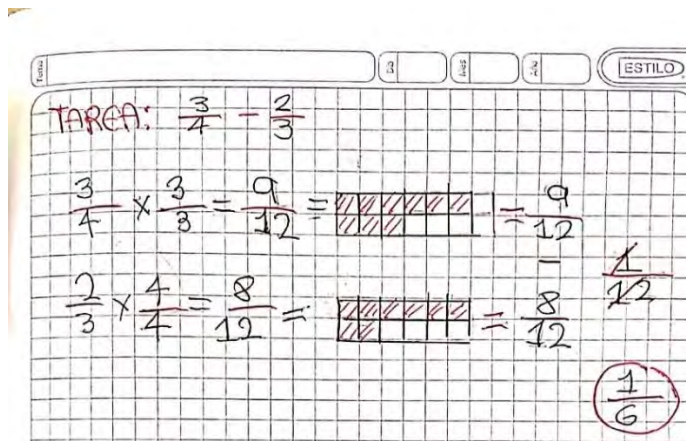 Tema
Día
Mes
Año
ESTILO
TAREA: 3/4 - 2/3
3/4 x 3/3 = 9/12 = = 9/12
-
2/3 x 4/4 = 8/12 = = 8/12
1/12
1/6